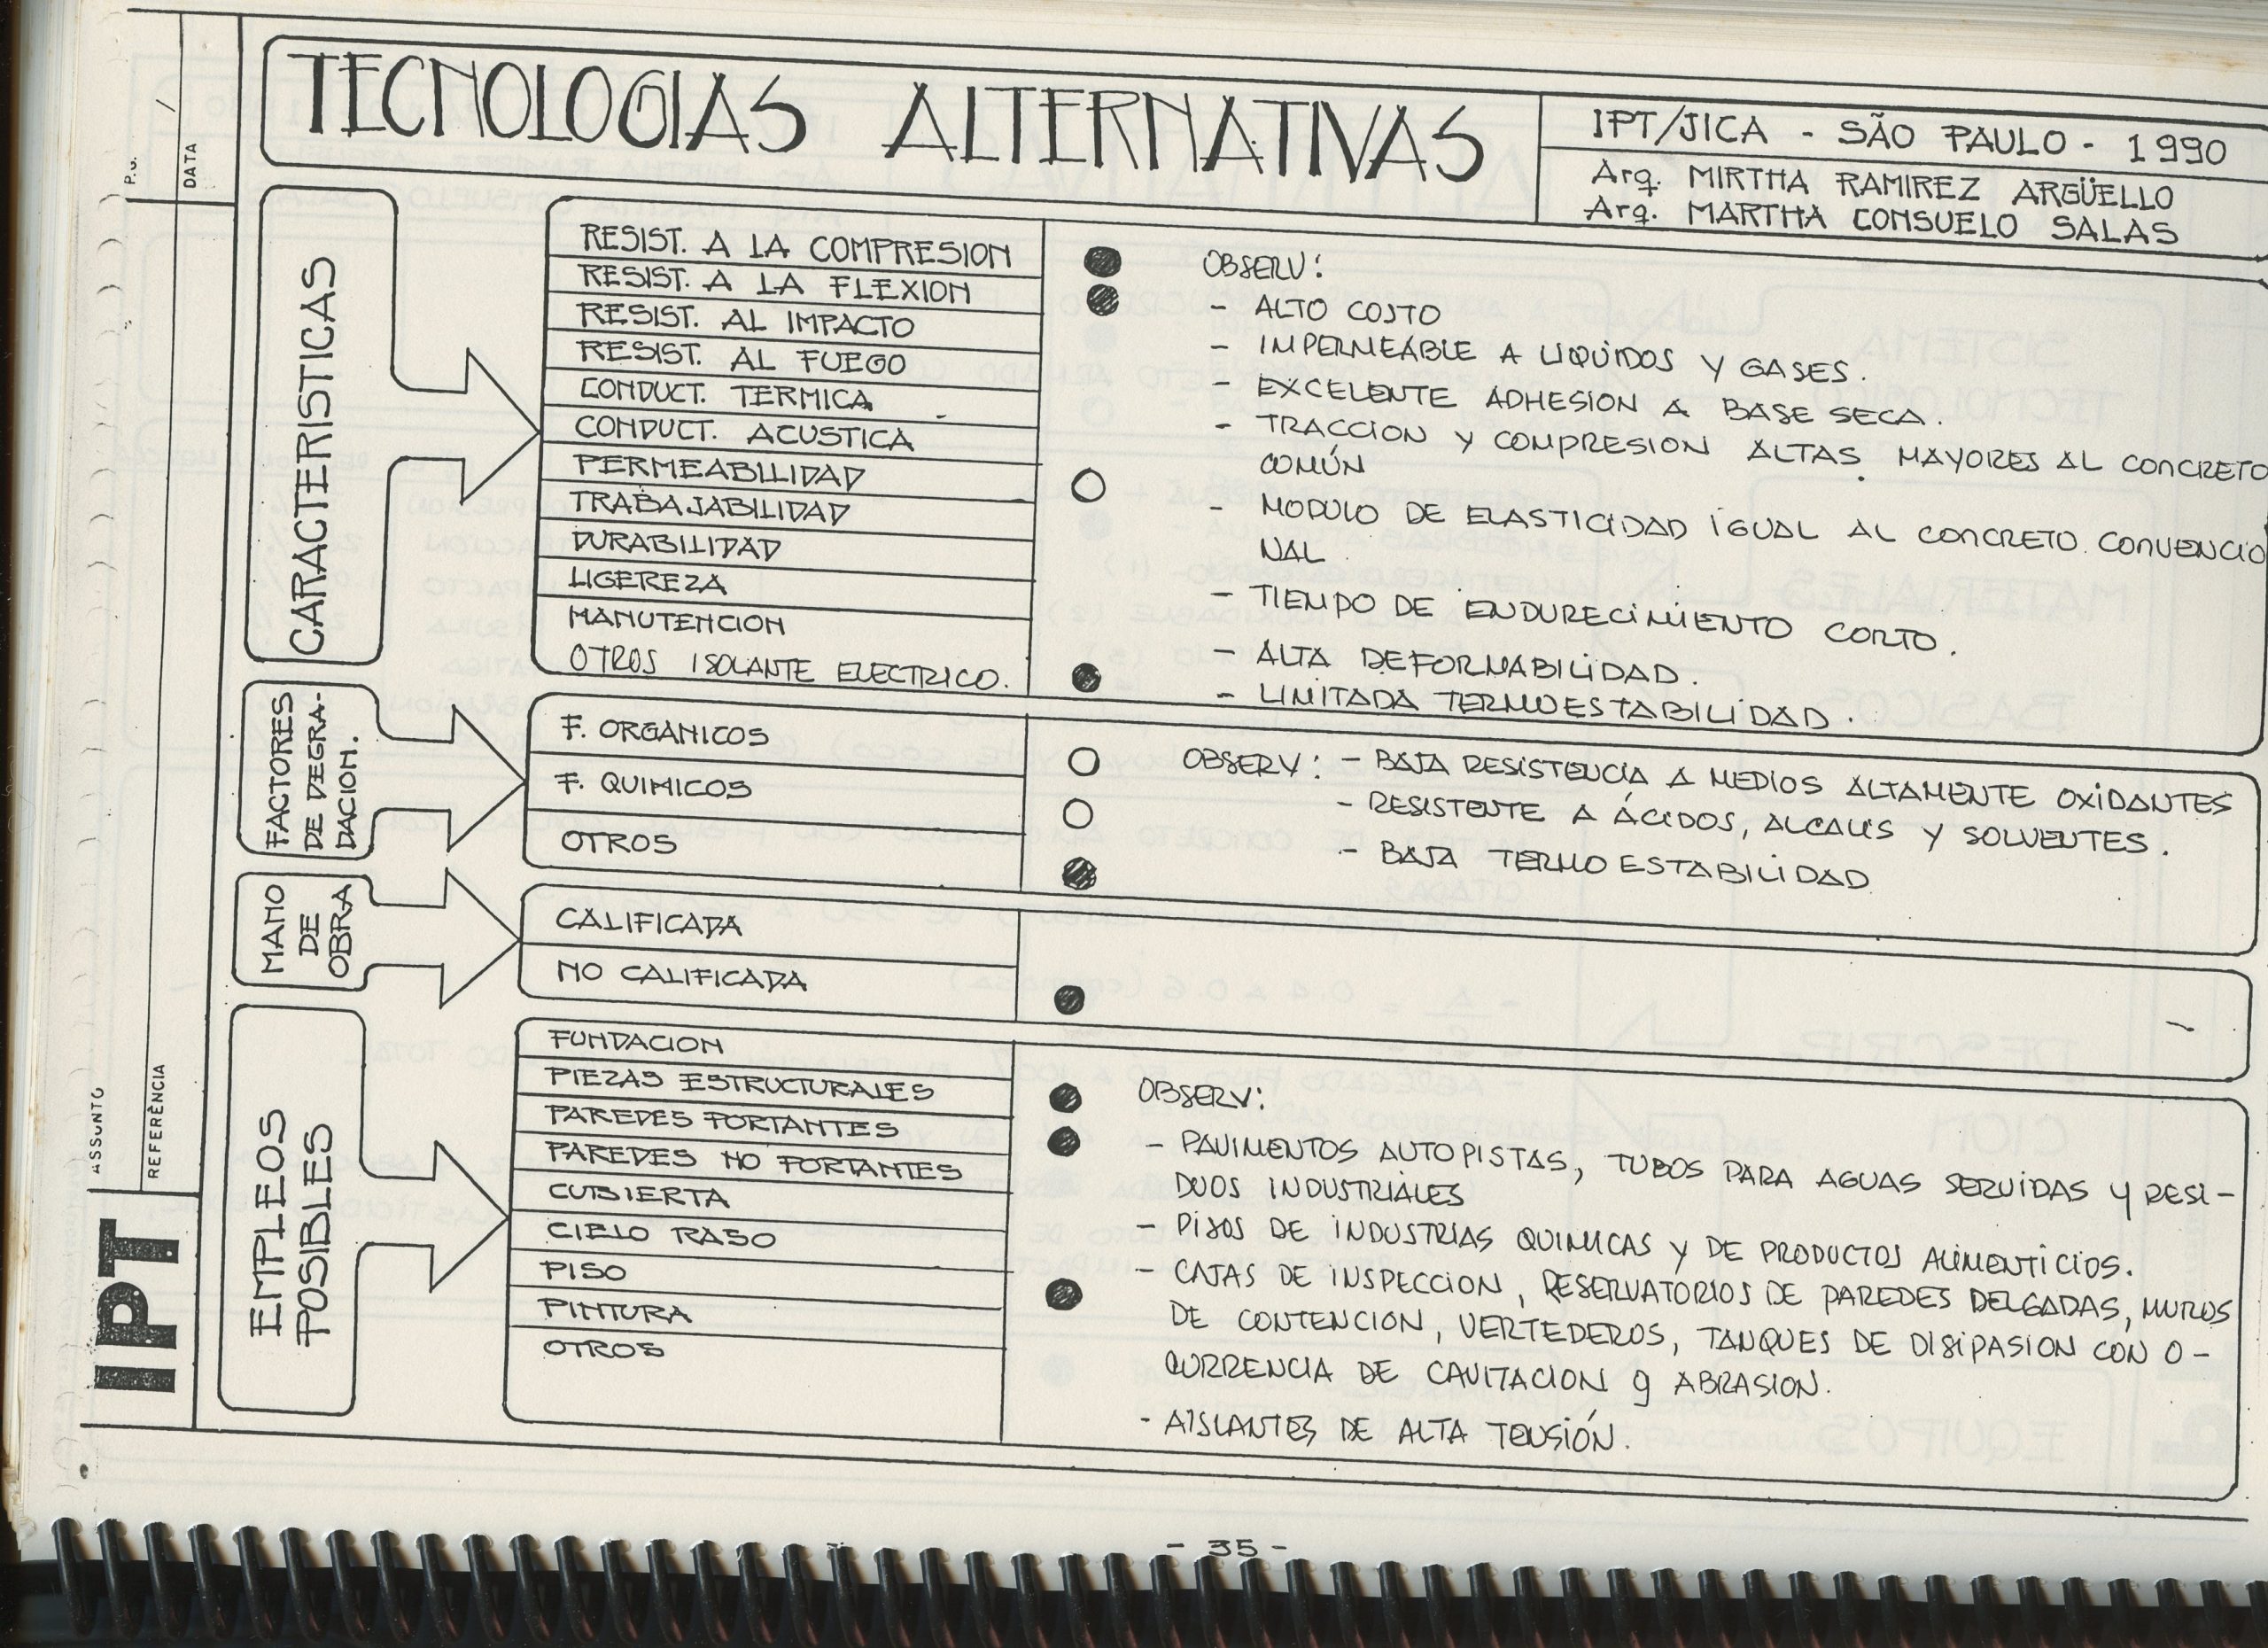 TECNOLOGIAS ALTERNATIVAS
IPT/JICA - SÃO PAULO - 1990
Arq. MIRTHA RAMIREZ ARGÜELLO
Arq. MARTHA CONSUELO SALAS
P.S.
DATA
/
ASSUNTO
REFERÊNCIA
IPT
CARACTERISTICAS
RESIST. A LA COMPRESION
RESIST. A LA FLEXION
RESIST. AL IMPACTO
RESIST. AL FUEGO
CONDUCT. TERMICA
CONDUCT. ACUSTICA
PERMEABILIDAD
TRABAJABILIDAD
DURABILIDAD
LIGEREZA
MANUTENCION
OTROS ISOLANTE ELECTRICO.
OBSERV:
- ALTO COSTO
- IMPERMEABLE A LIQUIDOS Y GASES.
- EXCELENTE ADHESION A BASE SECA.
- TRACCION Y COMPRESION ALTAS. MAYORES AL CONCRETO
COMÚN
- MODULO DE ELASTICIDAD IGUAL AL CONCRETO CONVENCIO
NAL.
- TIEMPO DE ENDURECIMIENTO CORTO.
- ALTA DEFORMABILIDAD.
- LIMITADA TERMOESTABILIDAD.
FACTORES
DE DEGRA-
DACION.
F. ORGANICOS
F. QUIMICOS
OTROS
OBSERV: - BAJA RESISTENCIA A MEDIOS ALTAMENTE OXIDANTES
- RESISTENTE A ÁCIDOS, ALCALIS Y SOLVENTES.
- BAJA TERMO ESTABILIDAD
MANO
DE
OBRA
CALIFICADA
NO CALIFICADA
EMPLEOS
POSIBLES
FUNDACION
PIEZAS ESTRUCTURALES
PAREDES PORTANTES
PAREDES NO PORTANTES
CUBIERTA
CIELO RASO
PISO
PINTURA
OTROS
OBSERV:
- PAVIMENTOS AUTOPISTAS, TUBOS PARA AGUAS SERVIDAS Y RESI-
DUOS INDUSTRIALES
- PISOS DE INDUSTRIAS QUIMICAS Y DE PRODUCTOS ALIMENTICIOS.
- CAJAS DE INSPECCION, RESERVATORIOS DE PAREDES DELGADAS, MUROS
DE CONTENCION, VERTEDEROS, TANQUES DE DISIPASION CON O-
CURRENCIA DE CAVITACION y ABRASION.
- AISLANTES DE ALTA TENSIÓN.
- 35 -